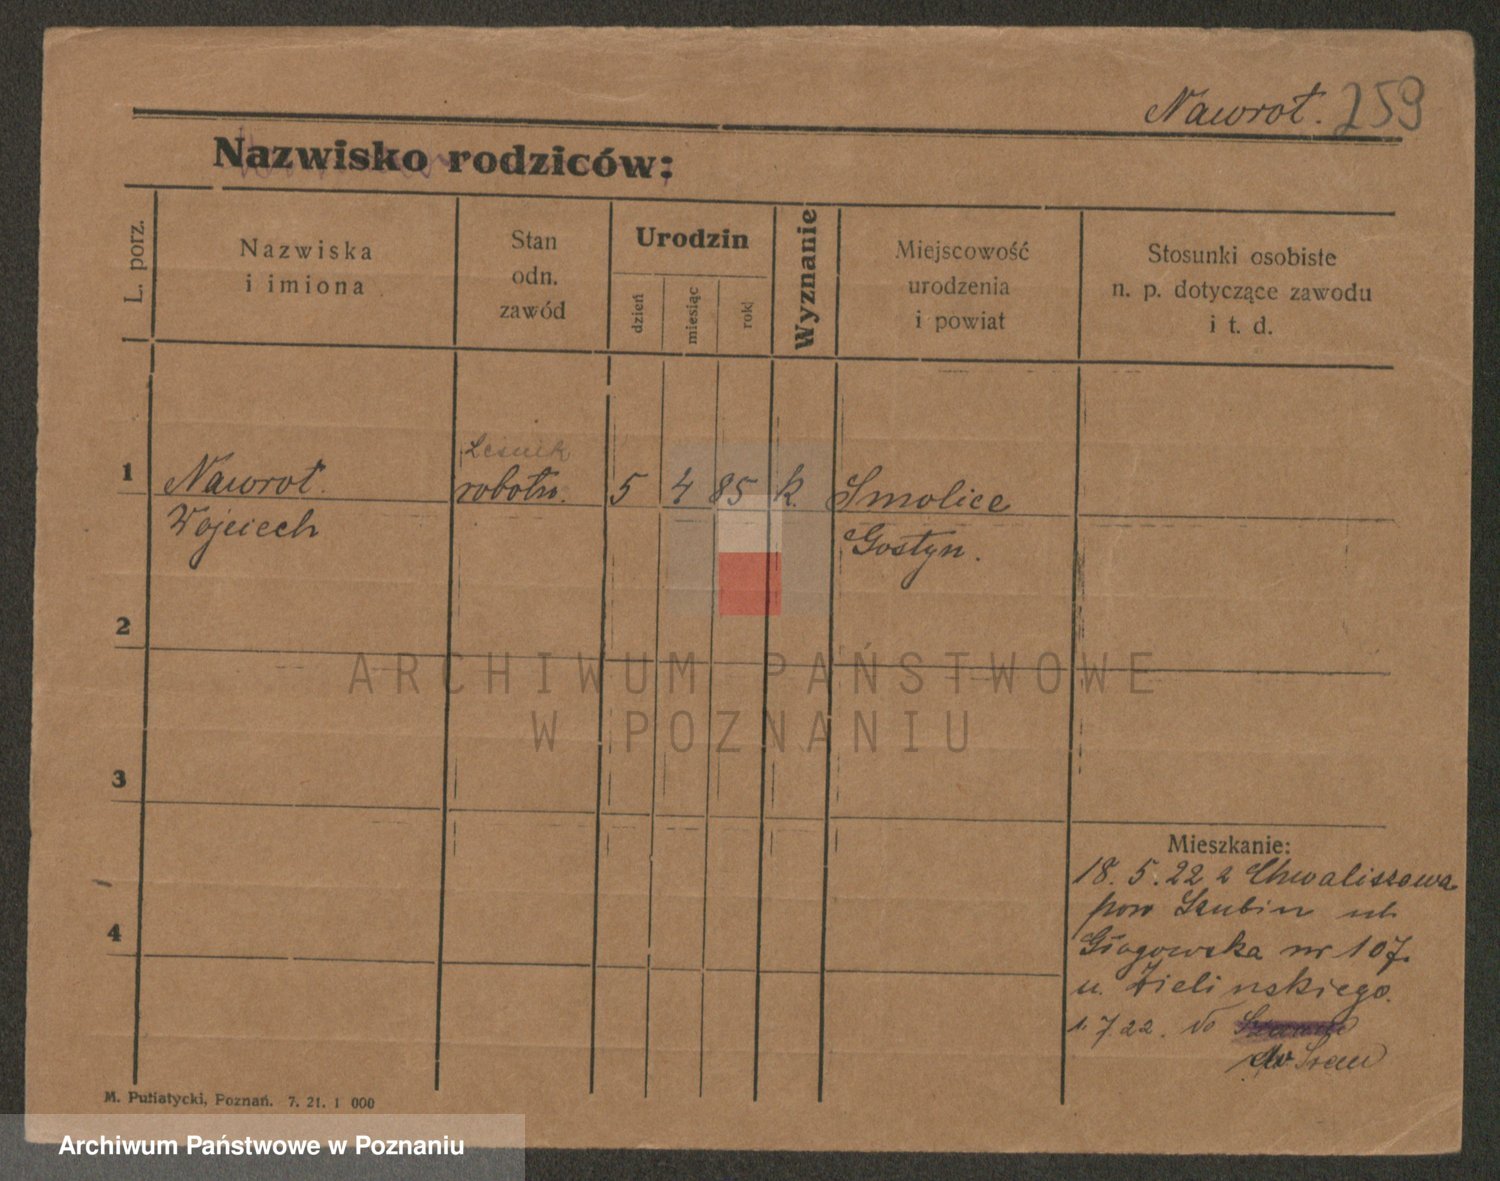 Nawrot. 259
Nazwisko rodziców:
L. porz.
Nazwiska
i imiona
Stan
odn.
zawód
Urodzin
dzień
miesiąc
rok
Wyznanie
Miejscowość
urodzenia
i powiat
Stosunki osobiste
n. p. dotyczące zawodu
i t. d.
Leśnik
1 Nawrot. robotn. 5 4 85 k. Smolice
Wojciech Gostyn.
2
ARCHIWUM PAŃSTWOWE
W POZNANIU
3
Mieszkanie:
18. 5. 22 z Chwaliszewa
pow Szubin ul.
4
Głogowska nr 107.
u. Zielinskiego.
1. 7 22. do
M. Putiatycki, Poznań. 7. 21. 1 000
Archiwum Państwowe w Poznaniu